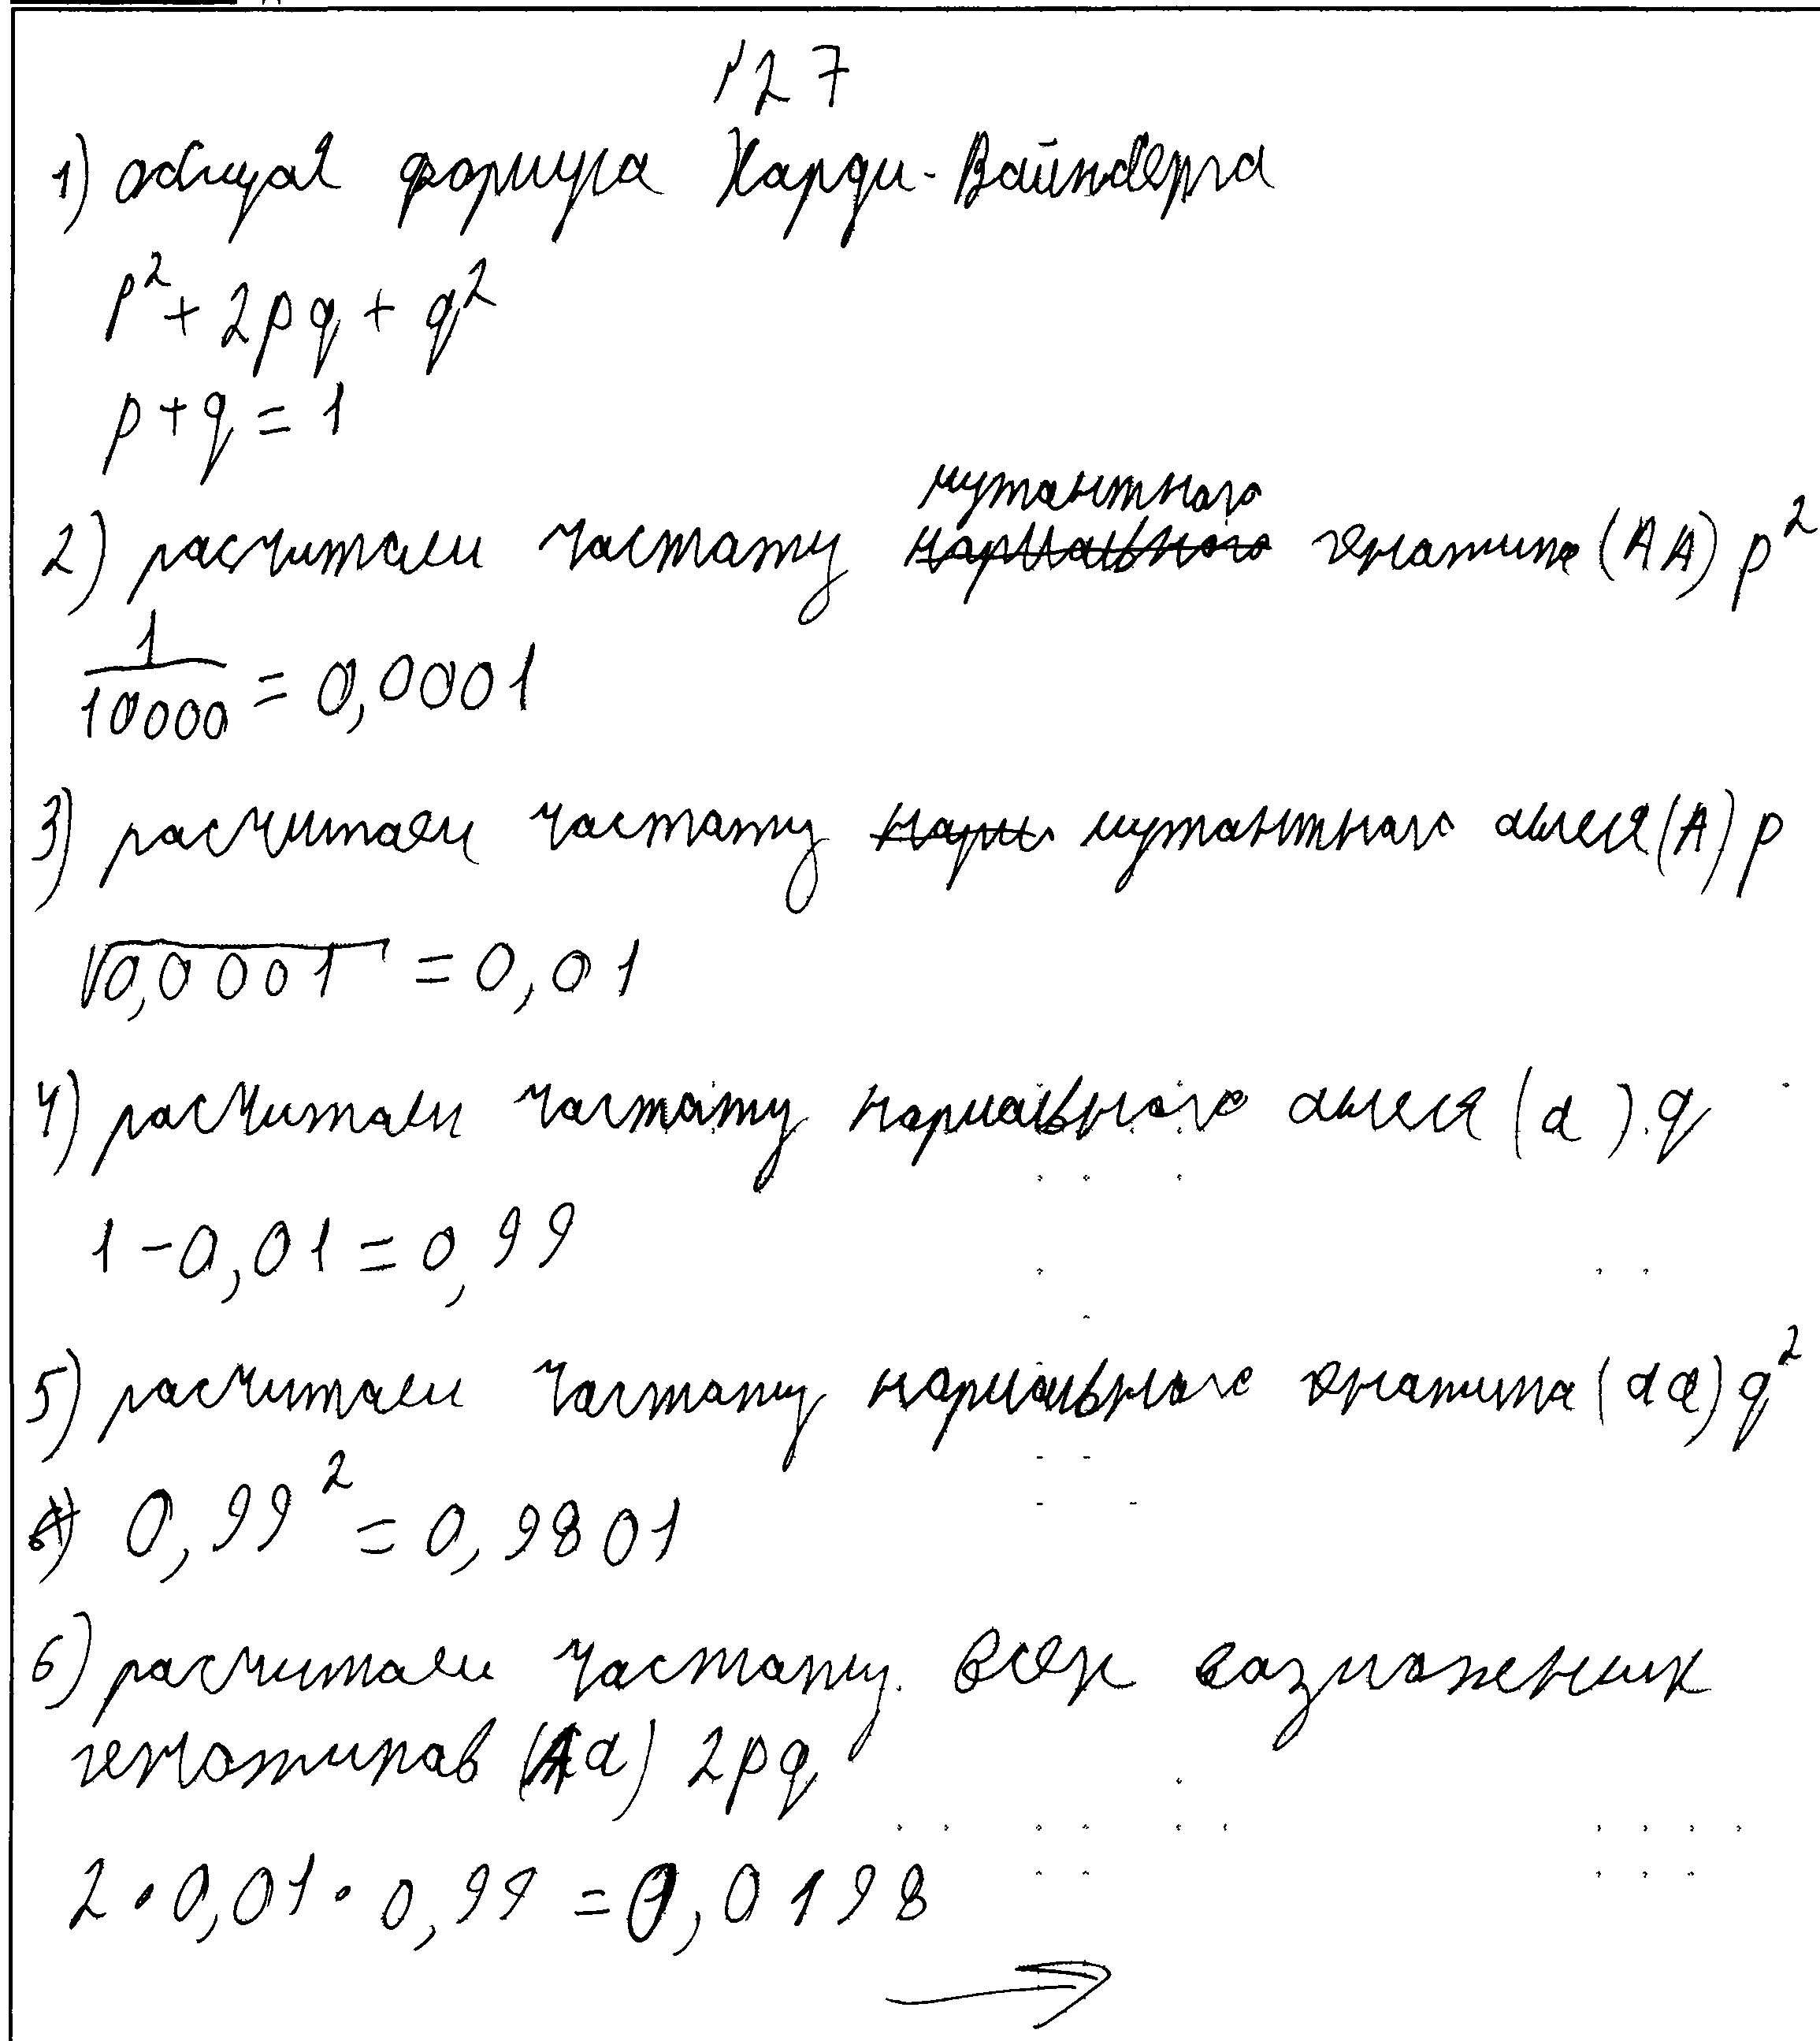 №27
1) общая формула Харди-Вайнберга
p² + 2pq + q²
p + q = 1
мутантного
2) расчитаем частату нармального генатипа (AA) p²
1/10000 = 0,0001
3) расчитаем частату нарм мутантнаго алеля (A) p
√0,0001 = 0,01
4) расчитаем частату нармального алеля (a) q
1 - 0,01 = 0,99
5) расчитаем частату нармальнаго генатипа (aa) q²
0,99² = 0,9801
6) расчитаем частату всех вазможенных
генотипав (Aa) 2pq
2 · 0,01 · 0,99 = 0,0198